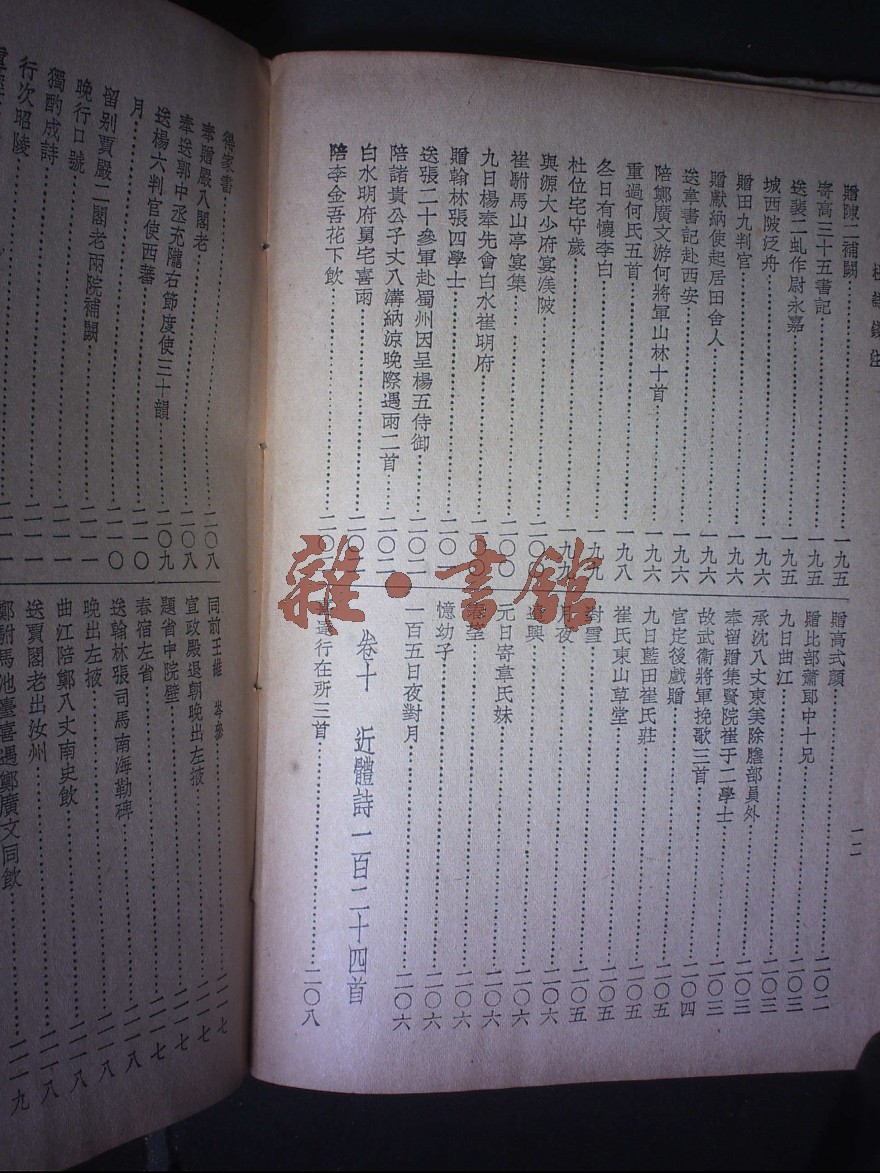 贈陳二補闕……一九五
寄高三十五書記……一九五
送裴二虬作尉永嘉……一九五
城西陂泛舟……一九六
贈田九判官……一九六
贈獻納使起居田舍人……一九六
送韋書記赴西安……一九六
陪鄭廣文游何將軍山林十首……一九六
重過何氏五首……一九八
冬日有懷李白……一九九
杜位宅守歲……一九九
與源大少府宴渼陂……二〇〇
崔駙馬山亭宴集……二〇〇
九日楊奉先會白水崔明府……二〇〇
贈翰林張四學士……二〇一
送張二十參軍赴蜀州因呈楊五侍御……二〇二
陪諸貴公子丈八溝納涼晚際遇雨二首……二〇二
白水明府舅宅喜雨……二〇二
陪李金吾花下飲……二〇二
贈高式顏……二〇二
贈比部蕭郎中十兄……二〇三
九日曲江……二〇三
承沈八丈東美除膳部員外……二〇三
奉留贈集賢院崔于二學士……二〇三
故武衛將軍挽歌三首……二〇三
官定後戲贈……二〇四
九日藍田崔氏莊……二〇五
崔氏東山草堂……二〇五
對雪……二〇五
月夜……二〇五
遣興……二〇六
元日寄韋氏妹……二〇六
春望……二〇六
憶幼子……二〇六
一百五日夜對月……二〇六
卷十 近體詩一百二十四首
達行在所三首……二〇八
一二
雜·書館
得家書……二〇八
奉贈嚴八閣老……二〇八
奉送郭中丞充隴右節度使三十韻……二〇九
送楊六判官使西蕃……二一〇
月……二一〇
留別賈嚴二閣老兩院補闕……二一一
晚行口號……二一一
獨酌成詩……二一一
行次昭陵……二一一
同前王維 岑參……二一七
宣政殿退朝晚出左掖……二一七
題省中院壁……二一七
春宿左省……二一七
送翰林張司馬南海勒碑……二一八
晚出左掖……二一八
曲江陪鄭八丈南史飲……二一八
送賈閣老出汝州……二一八
鄭駙馬池臺喜遇鄭廣文同飲……二一九